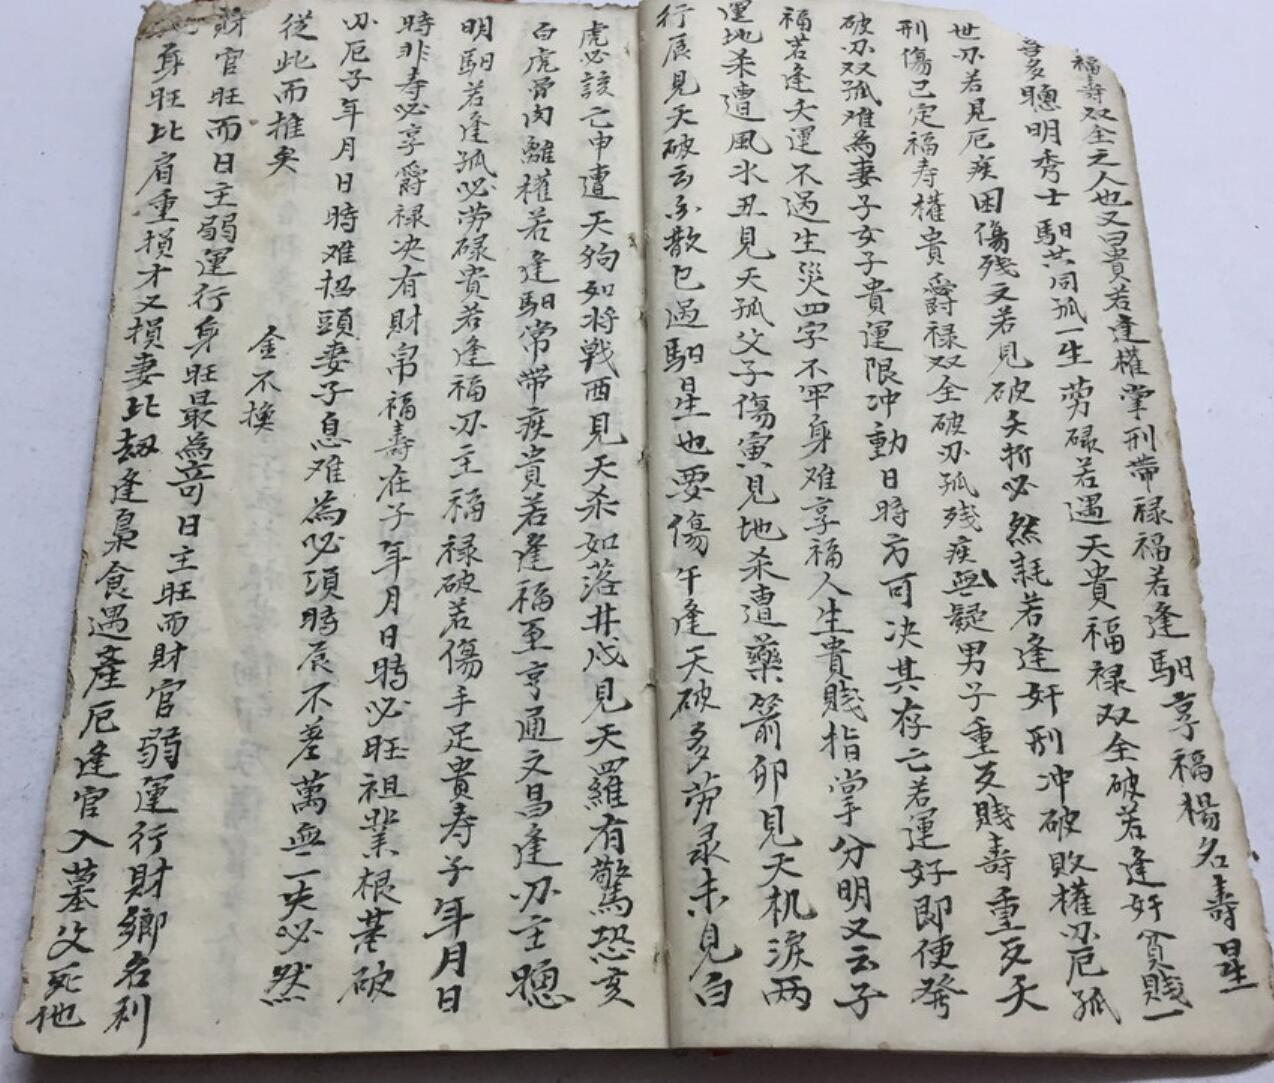 福壽双全之人也又曰貴若逢權掌刑带禄福若逢馹享福楊名壽星
多聰明秀士馹共同孤一生劳碌若遇天貴福禄双全破若逢奸貧賤一
世刃若見厄疾困傷殘文若見破夭折必然耗若逢奸刑冲破敗權刃厄孤
刑傷已定福寿權貴爵禄双全破刃孤残疾無疑男子重友賤壽重友夭
破刃双孤难為妻子女子貴運限冲動日時方可决其存亡若運好即便發
福若逢夭運不過生災四字不牢身难享福人生貴賤指掌分明又云子
運地杀遭風水丑見天孤父子傷寅見地杀遭藥箭卯見天机淚两
行辰見天破云不散巳過馹星也要傷午逢天破多劳录未見白
虎必該亡申遭天狗如将戰酉見天杀如落井戌見天羅有驚恐亥
白虎骨肉離權若逢馹常带疾貴若逢福至亨通文昌逢刃主聰
明馹若逢孤必劳碌貴若逢福刃主福禄破若傷手足貴寿子年月日
時非寿必享爵禄决有財帛福壽在子年月日時必旺祖業根基破
刃厄子年月日時难招頭妻子息难為必須時辰不差萬無一失必然
從此而推矣
金不换
財官旺而日主弱運行身旺最為奇日主旺而財官弱運行財鄉名利
身旺比肩重損才又損妻比刼逢梟食遇產厄逢官入墓父死他